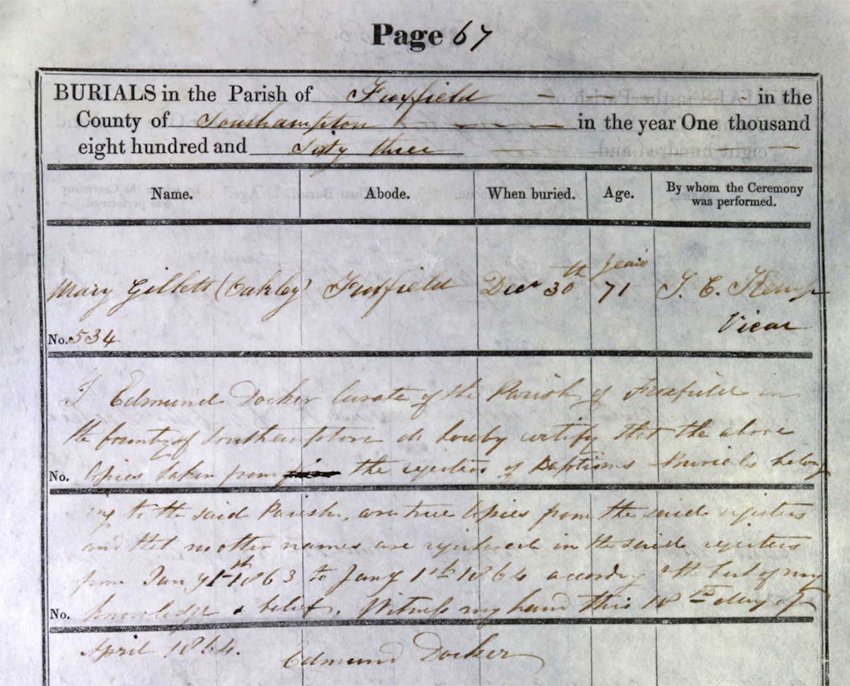 Page 67
BURIALS in the Parish of Froxfield in the
County of Southampton in the year One thousand
eight hundred and Sixty three
Name. Abode. When buried. Age. By whom the Ceremony was performed.
Mary Gillett (Oakley) Froxfield Decr 30th 71 years J. C. Kemp
Vicar
No. 534
I Edmund Docker Curate of the Parish of Froxfield in
the County of Southampton do hereby certify that the above
No. Copies taken from the registers of Baptisms Burials belong
ing to the said Parish, are true Copies from the said registers
and that no other names are registered in the said registers
from Jany 1st 1863 to Jany 1st 1864 according to the best of my
No. knowledge & belief. Witness my hand this 18th day of
April 1864. Edmund Docker